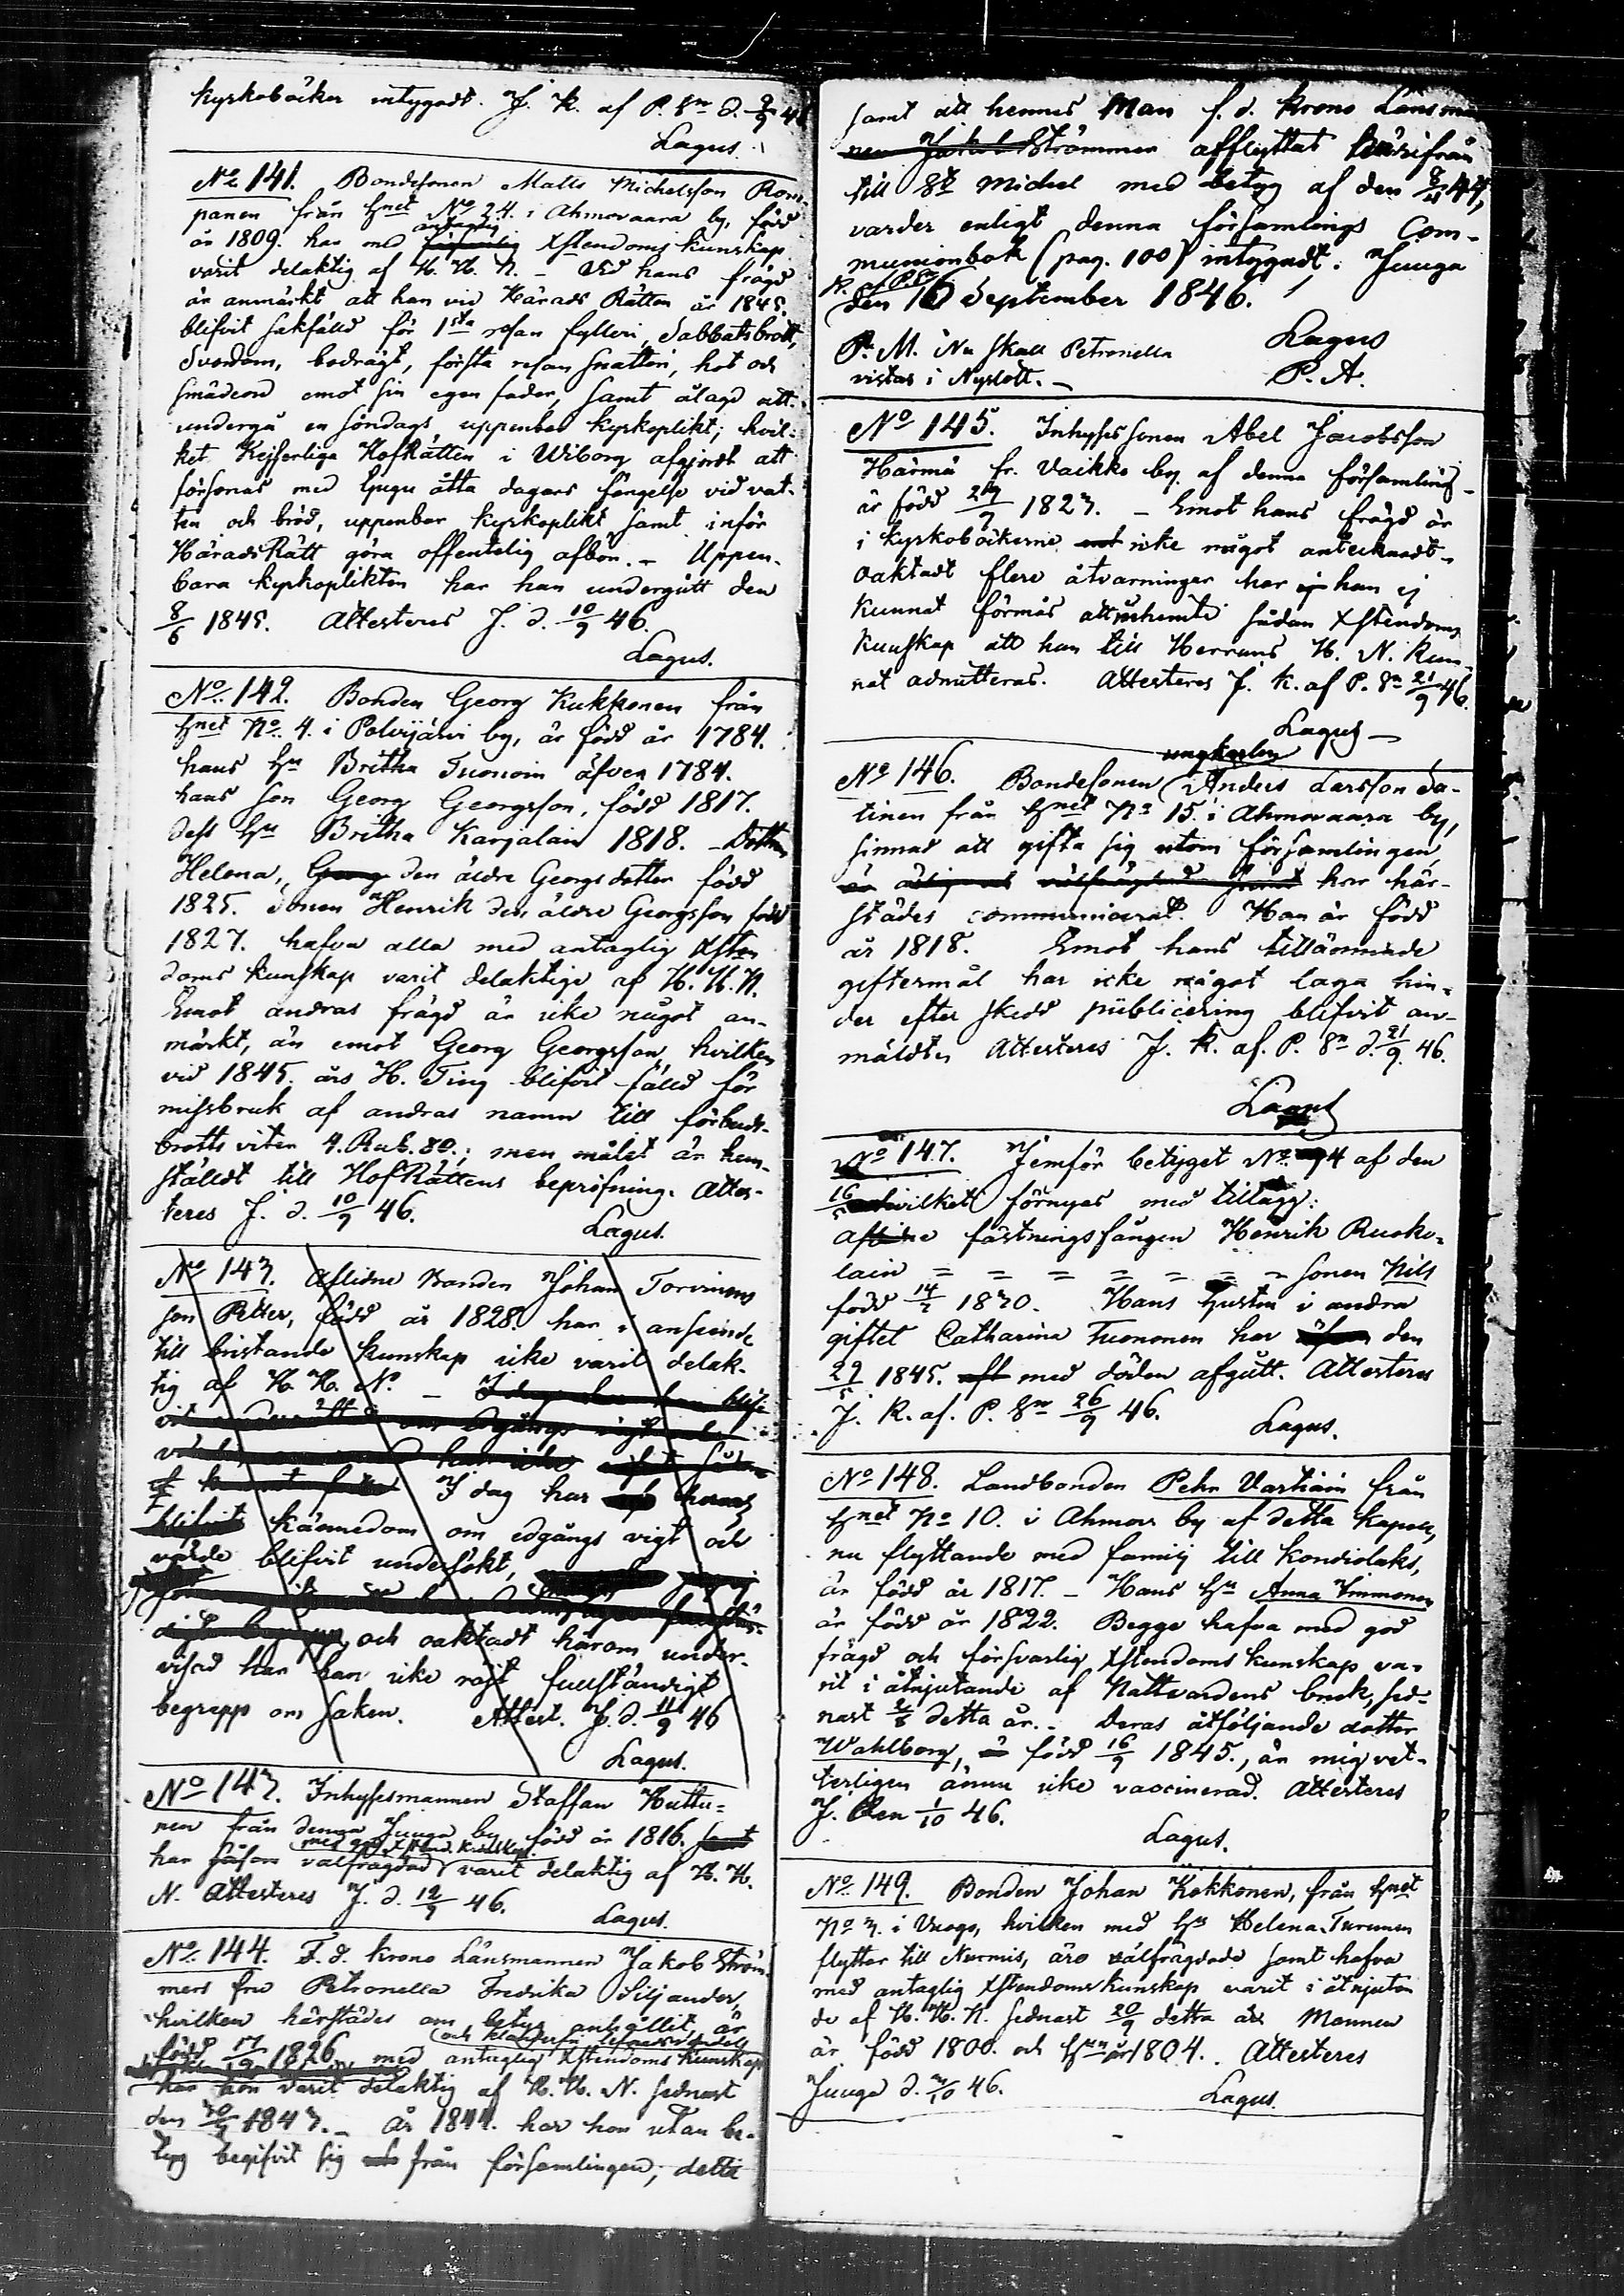 kyrkoböcker intygadt. J. K. af P. Sn d. 9/9 46
Lagus.
No 141. Bondesonen Matts Michelsson Rom-
panen från hmet No 24. i Ahmovaara by, född
år 1809. har med antaglig Xstendoms kunskap
varit delaktig af H. H. N. - Vid hans frägd
är anmärkt att han vid Härads Rätten år 1845.
blifvit sakfälld för 1sta resan fylleri, Sabbatsbrott,
Svordom, bedrägt, första resan snatteri, hot och
smädeord emot sin egen fader, samt ålagd att
undergå en söndags uppenbar kyrkoplikt; hvil-
ket Kejserliga HofRätten i Wiborg afgjordt att
försonas med tjugu åtta dagars fängelse vid vat-
ten och bröd, uppenbar kyrkoplikt samt inför
HäradsRätt göra offentelig afbön. - Uppen-
bara kyrkoplikten har han undergått den
8/6 1845. Attesteres J. d. 10/9 46.
Lagus.
No. 142. Bonden Georg Kukkonen från
hmet No. 4. i Polvijärvi by, är född år 1784.
hans hu Britha Tuonoin äfven 1784.
hans son Georg Georgsson, född 1817.
dess hu Britha Karjalain 1818. - Dottren
Helena, Georg den äldre Georgsdotter född
1825. Sonen Henrik den äldre Georgsson född
1827. hafva alla med antaglig Xsten
doms kunskap varit delaktige af H. H. N.
Emot andras frägd är icke något an-
märkt, än emot Georg Georgsson, hvilken
vid 1845. års H. Ting blifvit fälld för
missbruk af andras namn till förbuds-
brotts viten 4. Rub. 80.; men målet är hem-
ställdt till HofRättens bepröfning. Attes-
teres J. d. 10/9 46.
Lagus.
No 143. Aflidne Bonden Johan Torvinens
son Petter, född år 1828. har i anseende
till bristande kunskap icke varit delak-
tig af H. H. N. -
I dag har
kännedom om edgångs vigt och
värde blifvit undersökt,
och oaktadt härom under-
visad har han icke röjt fullständigt
begrepp om saken. Attest. J. d. 11/9 46
Lagus.
No 143. Inhysesmannen Staffan Huttu-
nen från denna Juuga by född år 1816. samt
med god Xstend. kunskap
har såsom välfrägdad varit delaktig af H. H.
N. Attesteres J. d. 12/9 46.
Lagus.
No. 144. F. d. Krono Länsmannen Jakob Ström-
mers fru Petronella Fredrika Siljander,
hvilken härstädes om betyg anhållit, är
född 17/9 1826. med antaglig Xstendoms kunskap
har hon varit delaktig af H. H. N. sednast
den 30/7 1843. - År 1844. har hon utan be-
tyg begifvit sig från församlingen; detta
samt att hennes Man f. d. Krono Länsman
nen Jakob Strömmer afflyttat härifrån
till St Michel med betyg af den 8/11 44,
varder enligt denna församlings Com-
munionbok (pag. 100) intygadt. Juuga
K. af P. Sn
den 16 September 1846.
Lagus
P. A.
P. M. Nu skall Petronella
vistas i Nyslott. -
No 145. Inhyses sonen Abel Jacobsson
Härmä fr. Vaikko by af denna församling
är född 29/9 1823. - Emot hans frägd är
i kyrkoböckerne icke något antecknadt.
Oaktadt flere åtvarningar har han ej
kunnat förmås att inhemta sådan Xstendoms
kunskap att han till Herrans H. N. kun-
nat admitteras. Attesteres J. K. af P. Sn 21/9 46.
Lagus -
No 146. Bondesonen ungkarlen Anders Larsson Sa-
tinen från hmet No 15. i Ahmovaara by,
sinnad att gifta sig utom församlingen
har här-
städes communicerat. Han är född
år 1818. Emot hans tillärnade
giftermål har icke något laga hin-
der efter skedd publicering blifvit an-
mäldt. Attesteres J. K. af. P. Sn d. 21/9. 46.
Lagus
No 147. Jemför betyget No. 94 af den
16/5 hvilket förnyas med tillägg:
Aflidne fästningsfången Henrik Rusko-
lain = = = = = = = sonen Nils
född 14/2 1830. Hans hustru i andra
giftet Catharina Tuononen har den
29/5 1845. med döden afgått. Attesteres
J. K. af. P. Sn 26/9 46.
Lagus.
No 148. Landbonden Pehr Vartiain från
hmet No 10. i Ahmov. by af detta kapell,
nu flyttande med familj till Kondiolaks,
är född år 1817. - Hans hu Anna Immonen
är född år 1822. Begge hafva med god
frägd och försvarlig Xstendoms kunskap va-
rit i åtnjutande af Nattvardens bruk, sed-
nast 2/8 detta år. - Deras åtföljande dotter
Wahlborg, född 16/9 1845., är mig vet-
terligen ännu icke vaccinerad. Attesteres
J. den 1/10 46.
Lagus.
No. 149. Bonden Johan Kokkonen, från hmet
No 3. i Vuogo, hvilken med hu Helena Turunen
flyttar till Nurmis, äro välfrägdade samt hafva
med antaglig Xstendoms kunskap varit i åtnjutan
de af H. H. N. sednast 20/9 detta år. Mannen
är född 1800. och hun år 1804. Attesteres
Juuga d. 3/10 46.
Lagus.